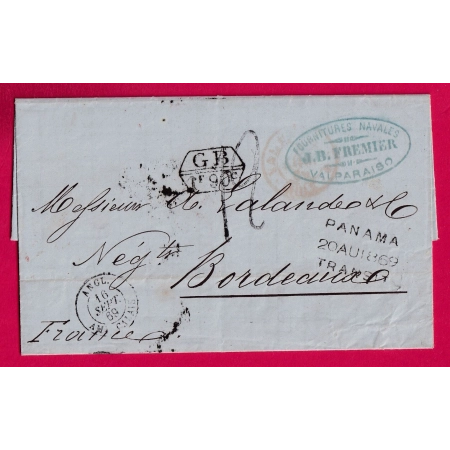 FOURNITURES NAVALES
J.B. FREMIER
VALPARAISO
GB
1F 90c
PANAMA
20 AU 1869
TRANSIT
Messieurs Lalande & Co
Négts
Bordeaux
ANGL.
16
SEPT.
69
AMB. CALAIS
France